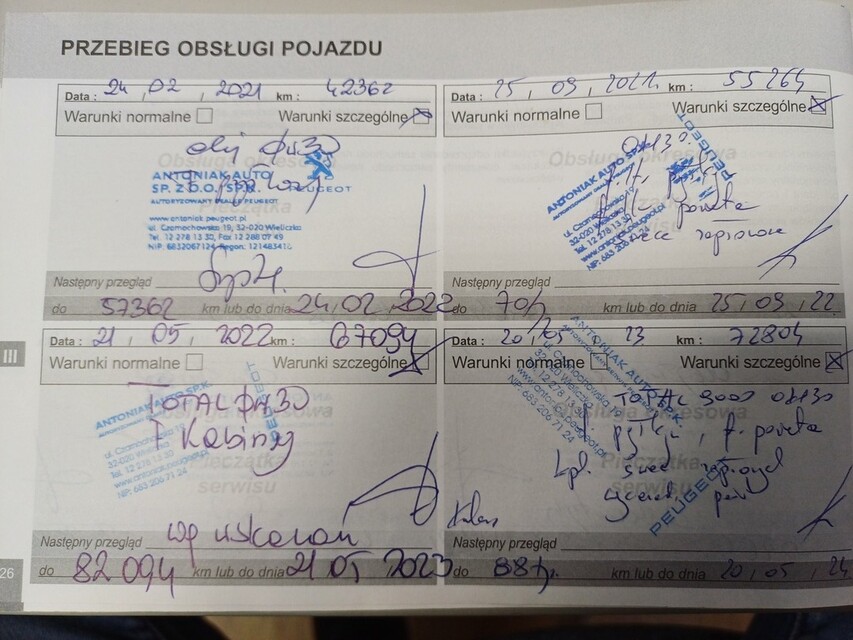 PRZEBIEG OBSŁUGI POJAZDU
Data : 24 , 02 , 2021 km : 42362
Warunki normalne Warunki szczególne
Obsługa okresowa
Pieczątka
olej 0W30
ANTONIAK AUTO
SP. Z O.O. SP.K.
PEUGEOT
AUTORYZOWANY DEALER PEUGEOT
www.antoniak.peugeot.pl
ul. Czarnochowska 19, 32-020 Wieliczka
Tel. 12 278 13 30, Fax 12 288 07 49
Następny przegląd
do 57362 km lub do dnia 24,02,2022
Data : 25 , 09 , 2021r. km : 55264
Warunki normalne Warunki szczególne
Obsługa okresowa
0W30
ANTONIAK AUTO SP.K.
PEUGEOT
ul. Czarnochowska 19
32-020 Wieliczka
Tel. 12 278 13 30
www.antoniak.peugeot.pl
NIP: 683 206 71 24
powietrza
świece zapłonowe
Następny przegląd
do 70 km lub do dnia 25/09/22
III
Data : 21 , 05 , 2022 km : 67094
Warunki normalne Warunki szczególne
TOTAL 0W30
F Kabiny
ANTONIAK AUTO SP.K.
PEUGEOT
ul. Czarnochowska
32-020 Wieliczka
Tel. 12 278 13 30
www.antoniak.peugeot.pl
NIP: 683 206 71 24
Pieczątka
serwisu
wg wskazań
Następny przegląd
do 82 094 km lub do dnia 21 05 2023
Data : 20 , 05 , 23 km : 72804
Warunki normalne Warunki szczególne
ANTONIAK AUTO SP.K.
ul. Czarnochowska
32-020 Wieliczka
Tel. 12 278 13 30
www.antoniak.peugeot.pl
NIP: 683 206 71 24
PEUGEOT
Obsługa okresowa
Pieczątka
serwisu
TOTAL 9000 0W30
f. pyłk. , f. powietrza
kpl. świec zapłonowych
Następny przegląd
do 88 km lub do dnia 20/05/24
26